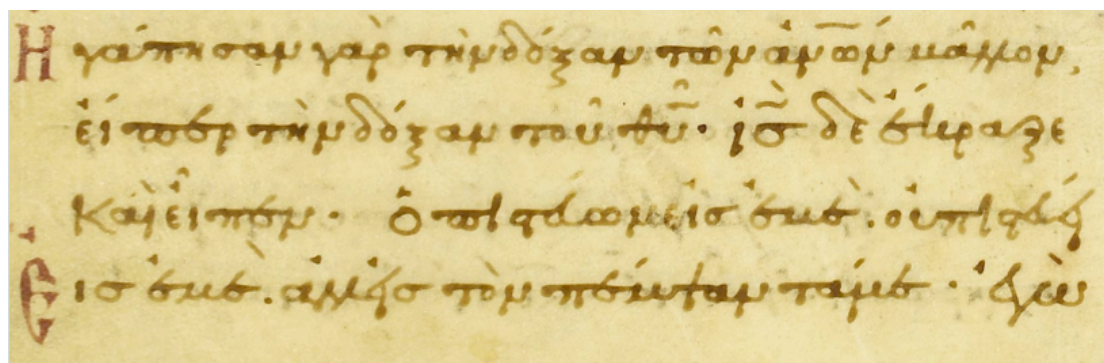 Ηγάπησαν γὰρ τὴν δόξαν τῶν ἀν̅ων μᾶλλον,
εἴπερ τὴν δόξαν τοῦ θ̅υ· ἰ̅ς δὲ ἔκραξε
καὶ εἶπεν· ὁ πιστεύων εἰς ἐμὲ. οὐ πιστεύει
εἰς ἐμὲ. ἀλλ' εἰς τὸν πέμψαντά με· ἐγὼ